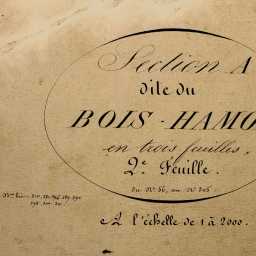 Section A
dite du
BOIS-HAMO
en trois feuilles.
2e Feuille.
du No
A l'échelle de 1 à 2000.